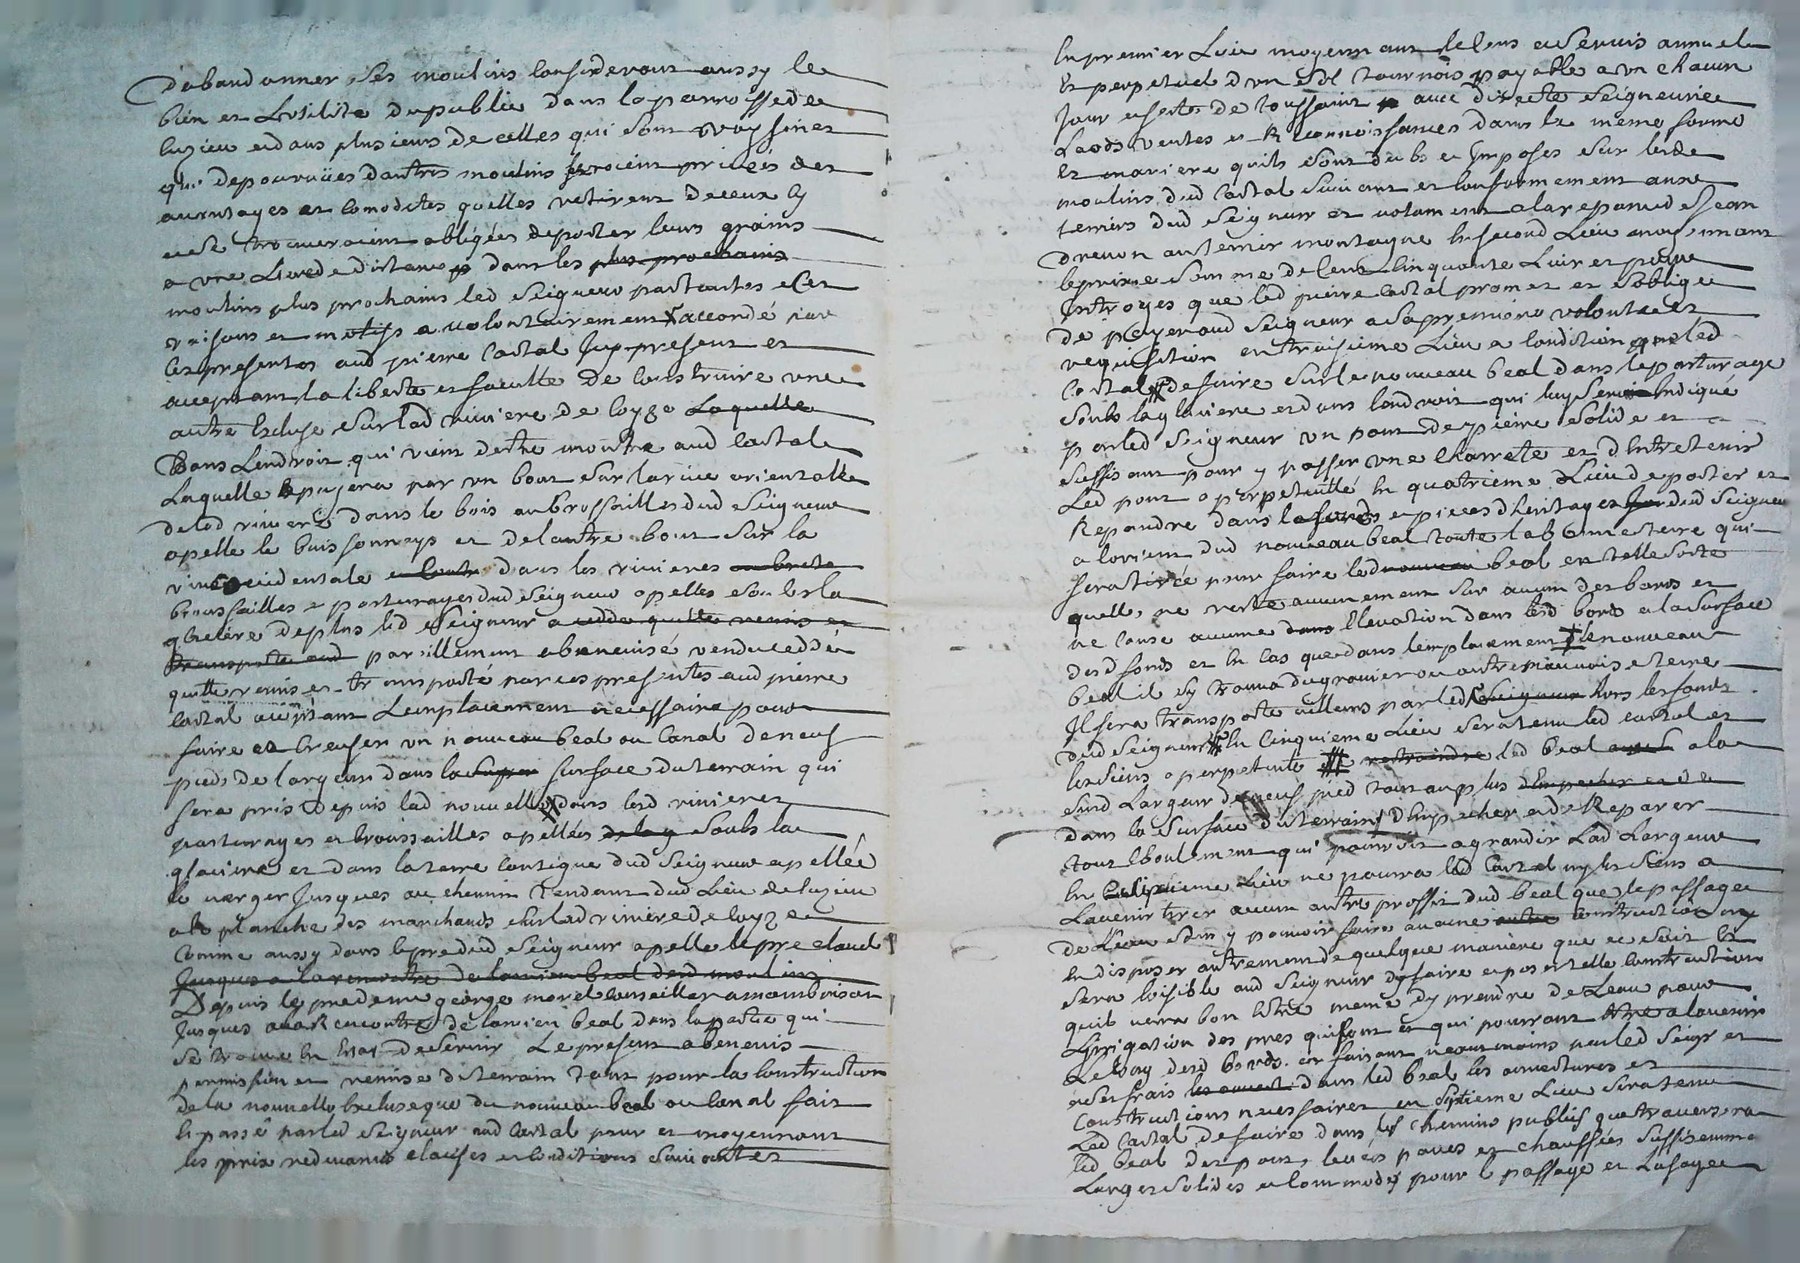 D'abandonner ses moulins considerant aussy le
bien et Lutilite du public dans la parroisse de
luzieu et dans plusieurs de celles qui sont voysines
qui depourvües d'autres moulins seroient privées des
avantages et comodites quelles retirent de ceux cy
et se trouveroient obligées de porter leurs grains
a une Lieue de distance dans les plus prochains
moulins plus prochains led Seigneur par toutes ces
raisons et motifs a volontairement accordé par
ces presentes aud pierre Cartal icy present et
acceptant la liberte et faculte de construire une
autre Ecluse sur lad riviere de loyze Laquelle
Dans Lendroit qui vient d'etre montré aud Cartal
Laquelle apuyera par un bout sur la rive orientalle
de lad riviere dans le bois ou brossailles dud Seigneur
apelle le buissonnays et de lautre bout sur la
rive occidentale dans les rivieres
broussailles et pasturages dud Seigneur apelles soubs la
glaciere de plus led Seigneur a cedde quitte remis et
transporte aud pareillement abenevisé vendu ceddé
quitte remis et transporté par ces presentes aud pierre
Cartal acceptant Lemplacement necessaire pour
faire et Creuser un nouveau beal ou Canal de neuf
pieds de largeur dans la surface du terrain qui
sera pris depuis lad nouvelle dans lesd rivieres
pasturages et broussailles apellées soubs la
glaciere et dans la terre contigue dud Seigneur apellée
le verger jusques au chemin Tendant dud Lieu de luzieu
a la planche des marchands sur lad riviere de loyze
Comme aussy dans le pre dud Seigneur apelle le pre claud
jusques a la rencontre de lancien beal desd moulins
Depuis le pre de me george morel conseiller a montbrison
jusques a la Rencontre de lancien beal dans la partie qui
se trouve en Etat de servir Le present abenevis
permission et remise de terrain tant pour la construction
de la nouvelle Ecluse que du nouveau beal ou Canal fait
et passé par led Seigneur aud Cartal pour et moyennant
les prix redevances clauses et conditions suivantes
En premier Lieu moyennant le Cens et servis annuel
Et perpetuel d'un sol tournois payable a un chacun
jour et feste de Toussaint avec directe Seigneurie
Laods ventes et Reconnoissances dans la même forme
Et maniere quils sont dubs et Imposes sur lesd
moulins dud Cartal suivant et conformement aux
terriers dud Seigneur et notament a la reponce de Jean
drevon au terrier montagne En second Lieu moyennant
le prix et Somme de Cent Cinquante Livres pour
Introges que led pierre Cartal promet et soblige
de payer aud Seigneur a sa premiere volonté et
requisition en troisieme Lieu a condition que led
Cartal de faire sur le nouveau beal dans le pasturage
soubs la glaciere et dans lendroit qui luy sera Indiqué
par led Seigneur un pont de pierre solide et
suffisant pour y passer une Charrete et d'Entretenir
Led pont a perpetuitté En quatrieme Lieu de porter et
Repandre dans les fonds et pieces d'heritages dud Seigneur
a lorient dud nouveau beal toute la bonne terre qui
sera tirée pour faire led nouveau beal en telle sorte
quelle ne reste aucunement sur aucun des bords et
ne Cause aucune dans Elevation dans lesd bords a la surface
desd fonds et En Cas que dans lemplacement de nouveau
beal il sy trouva du gravier ou autre mauvaise terre
Il sera transporté ailleurs par led Seigneur hors les fonds
dud Seigneur En Cinquieme Lieu sera tenu led cartal et
les siens a perpetuité restraindre led beal a la
susd Largeur de neuf pied tout au plus dEmpecher et de
dans la surface du terrain d'Empecher et de Reparer
tout Eboulement qui pourroit agrandir Lad Largeur
En sixieme Lieu ne pourra led Cartal ny les siens a
Lavenir tirer aucun autre proffit dud beal que le passage
de Leau sans y pouvoir faire aucune autre construction ny
En disposer autrement de quelque maniere que ce soit Et
sera loisible aud Seigneur dy faire et poser telle construction
quil verra bon Estre meme dy prendre de Leau pour
Lirrigation des pres qui sont et qui pourront être a lavenir
Le long desd bords en faisant neantmoins par led Seigr et
a ses frais dans led beal les ouvertures et
Constructions necessaires en septieme Lieu sera tenu
Led Cartal de faire dans les chemins publics que traversera
led beal des ponts, levées paves et chaussées suffisamment
Larges solides et commodes pour le passage et Lusage